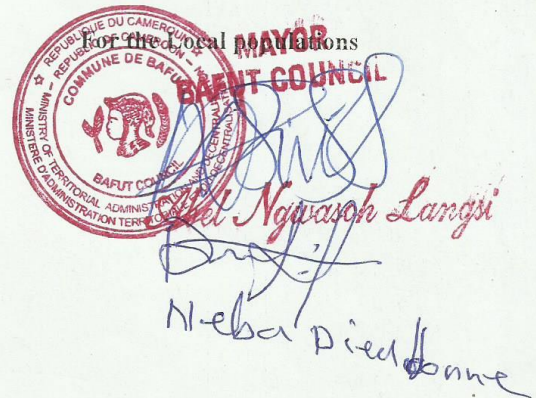 For the Local populations
MAYOR
BAFUT COUNCIL
REPUBLIQUE DU CAMEROUN
REPUBLIC OF CAMEROON
COMMUNE DE BAFUT
BAFUT COUNCIL
MINISTRY OF TERRITORIAL ADMINISTRATION AND DECENTRALI
MINISTERE D'ADMINISTRATION TERRITO
Ngwasoh Langsi
Neba Dieudonne